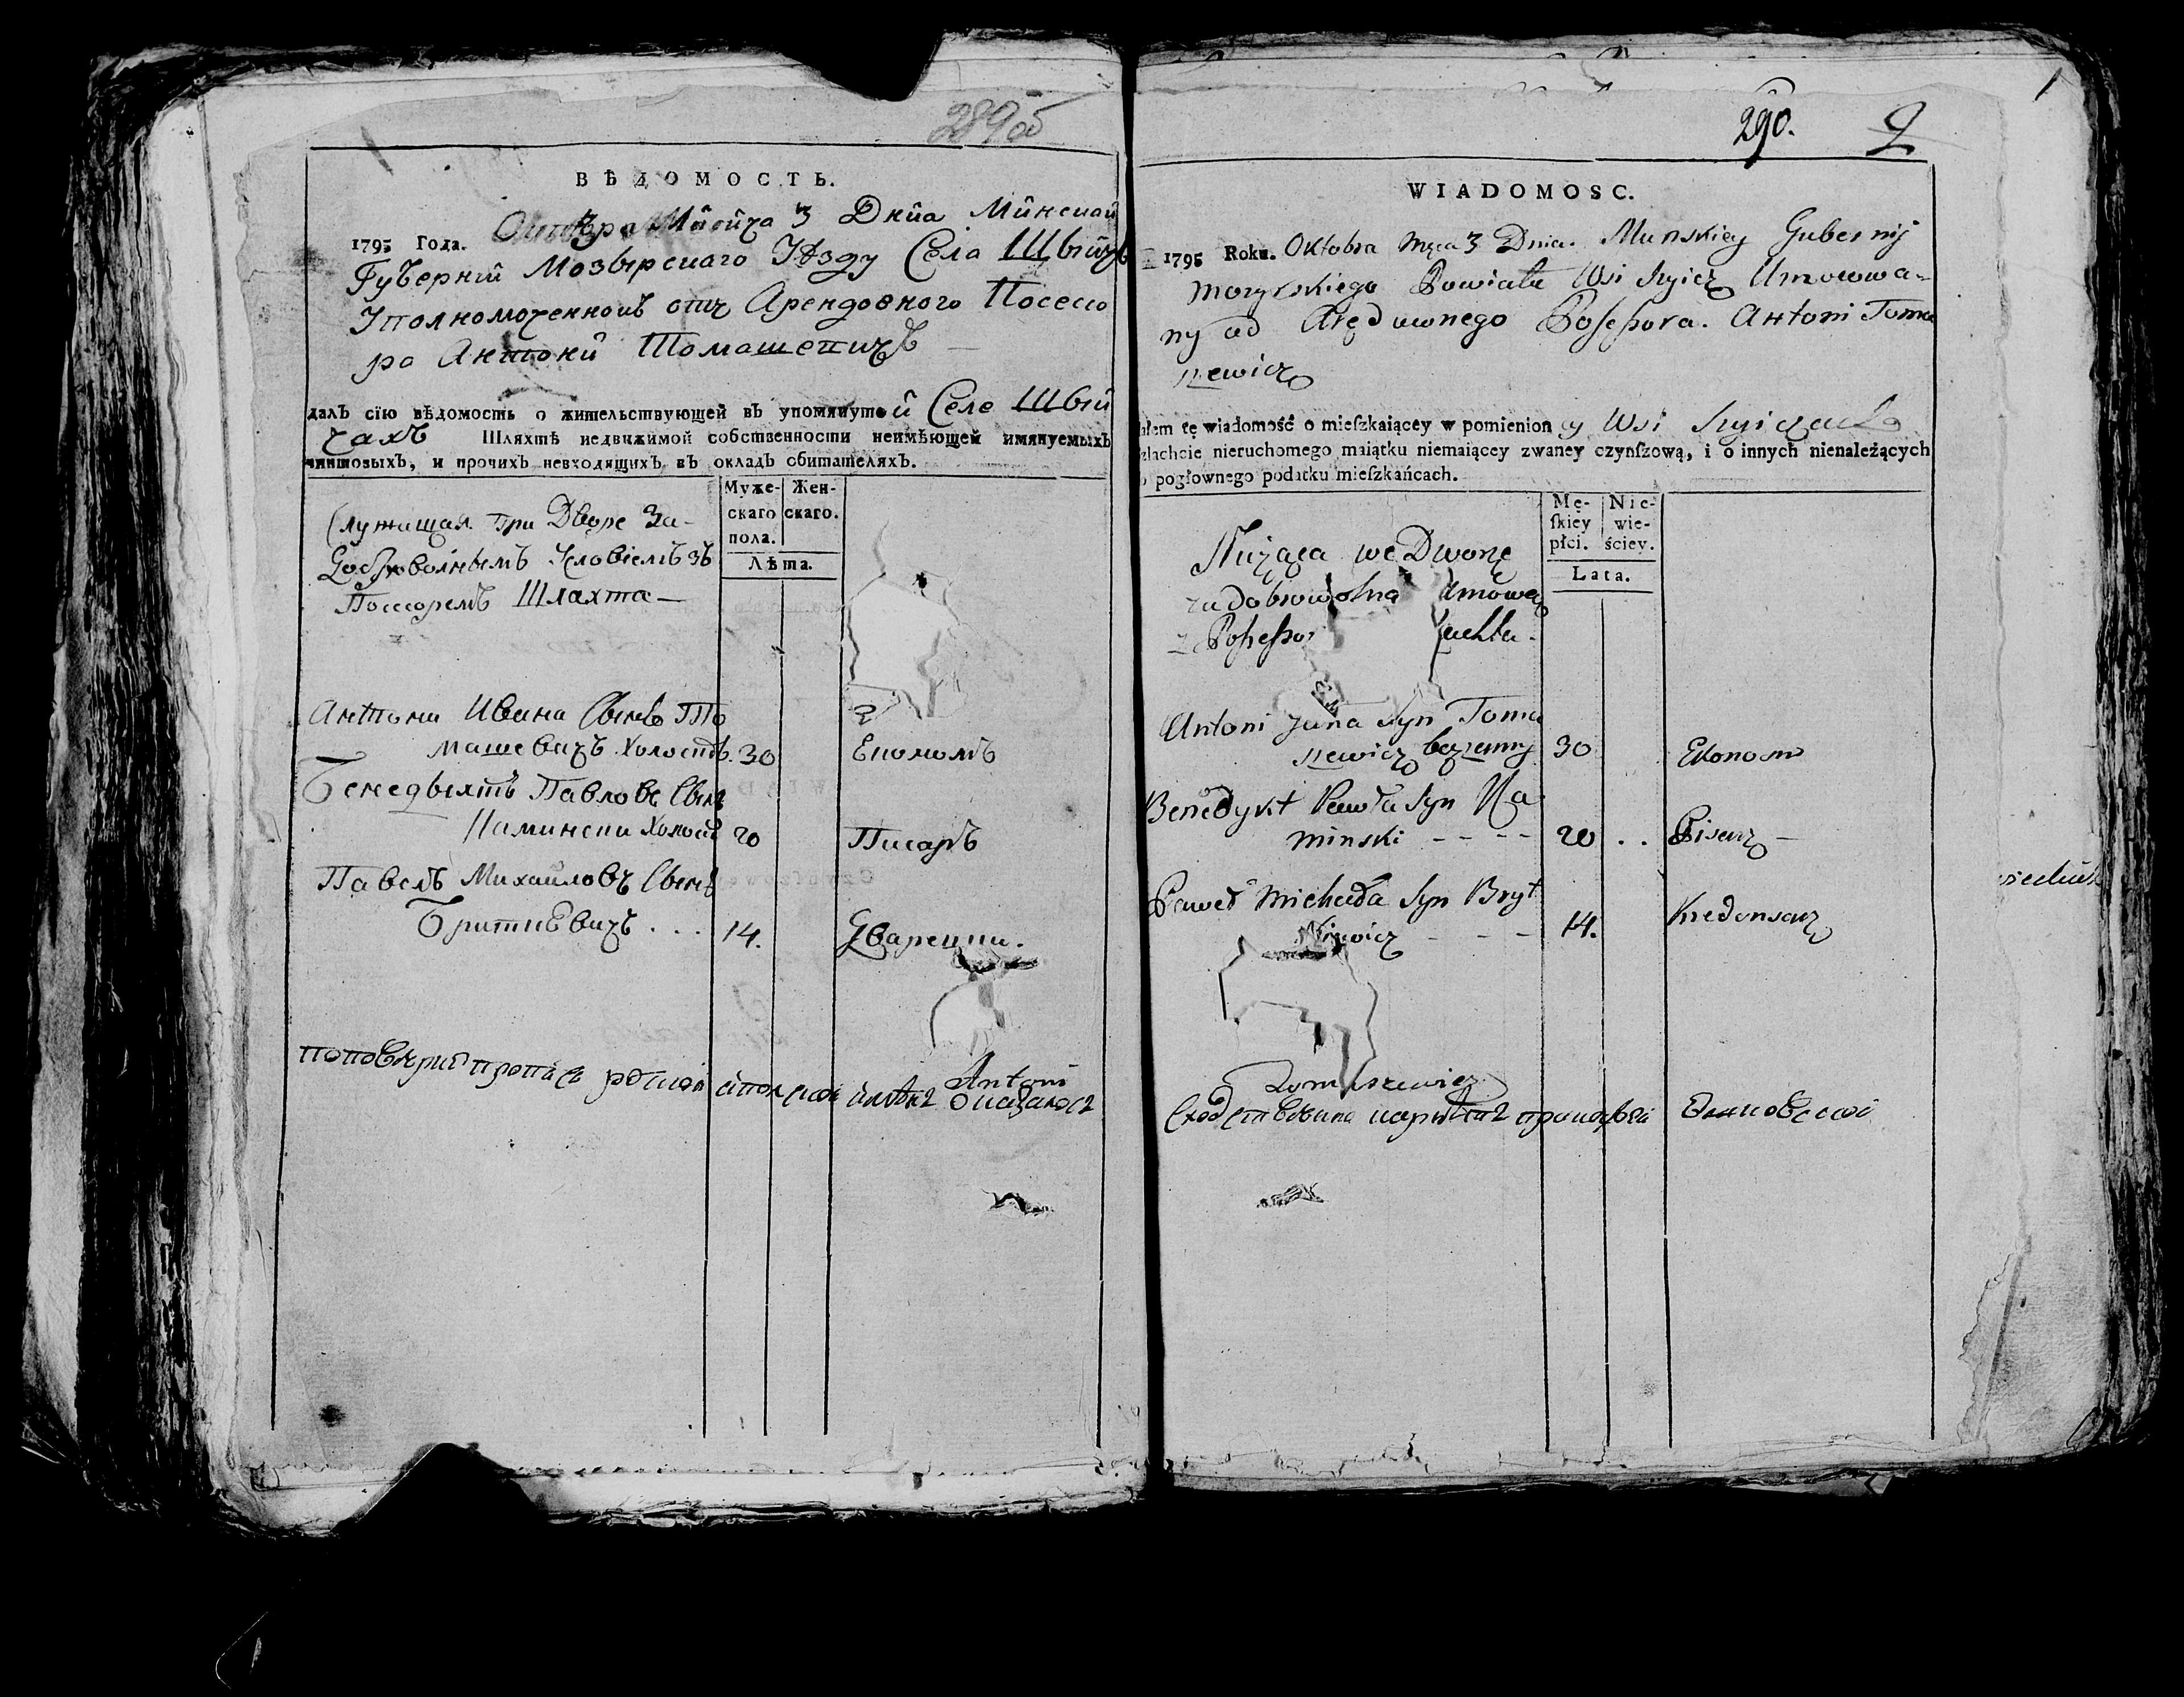 289 об
ВѢДОМОСТЬ.
1795 Года. Октября Мѣсяца 3 Днйа Минской
Губерніи Мозырскаго Уѣзду Села Щыиц
Уполномоченной отъ Арендовного Посессо
ра Антоній Томашевичъ —
далъ сію вѣдомость о жительствующей въ упомянутой Селе Щыи
чахъ Шляхтѣ недвижимой собственности неимѣющей имянуемыхъ
чиншовыхъ, и прочихъ невходящихъ въ окладъ обитателяхъ.
Муже-скаго пола. Жен-скаго.
Лѣта.
Служищая при Дворе За-
Добровольнымъ
Шляхта —
Антони Ивана Сынъ То
машевичъ холостъ. 30 Економъ
Бенедыктъ Павловъ Сынъ
Камински холост 20 Писаръ
Павелъ Михаиловъ Сынъ
Бриткевичъ . . . 14.
Antoni
290. 2
WIADOMOSC.
1795 Roku. Oktobra Mca 3 Dnia. Minskiey Gubernij
Mozyrskiego Powiatu Wsi Szyicz Umocowa-
ny od Arędownego Possessora. Antoni Toma
szewicz
ałem tę wiadomość o mieſzkaiącey w pomienioney Wsi Szyiczach
zlachcie nieruchomego maiątku niemaiącey zwaney czynſzową, i o innych nienależących
pogłownego podatku mieſzkańcach.
Mę-ſkiey płci. Nie-wie-ściey.
Lata.
Służąca we Dworze
za dobrowolną Umową
z Possesso achta.
Antoni Jana Syn Toma
szewicz bezzenny 30 Ekonom
Benedykt Pawła Syn Ka
minski - - - - 20 . . Pisarz —
Paweł Michała Syn Bryt
kiewicz - - - 14. Kredensarz
Tomaszewicz